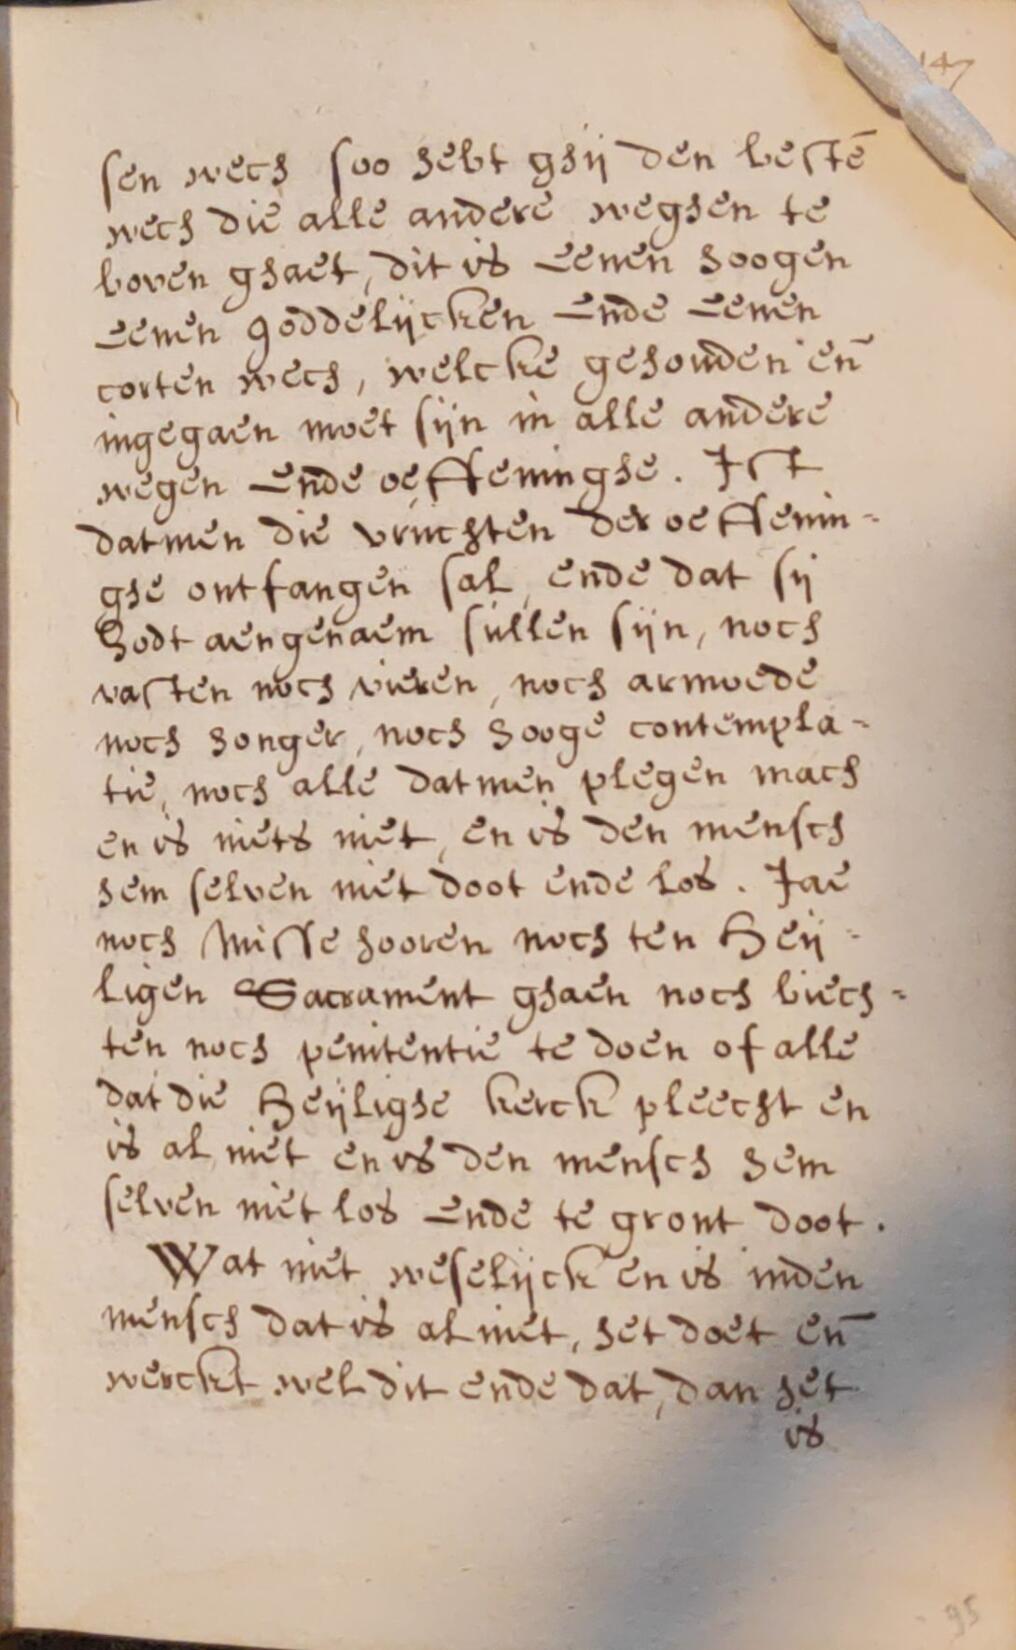 147
sen wech soo hebt ghij den bestē
wech die alle andere weghen te
boven ghaet, dit is eenen hoogen
eenen goddelijcken ende eenen
corten wech, welcke gehouden en̄
ingegaen moet sijn in alle andere
wegen ende oeffeninghe. Ist
datmen die vruchten der oeffenin-
ghe ontfangen sal, ende dat sij
Godt aengenaem sullen sijn, noch
vasten noch vieren, noch armoede
noch honger, noch hooge contempla-
tie, noch alle datmen plegen mach
en is niets niet, en is den mensch
hem selven niet doot ende los. Jae
noch Misse hooren noch ten Heij-
ligen Sacrament ghaen noch biech-
ten noch penitentie te doen of alle
dat die Heijlighe kerck pleecht en
is al niet en is den mensch hem
selven niet los ende te gront doot.
Wat niet weselijck en is inden
mensch dat is al niet, het doet en̄
werckt wel dit ende dat, dan het
is
95